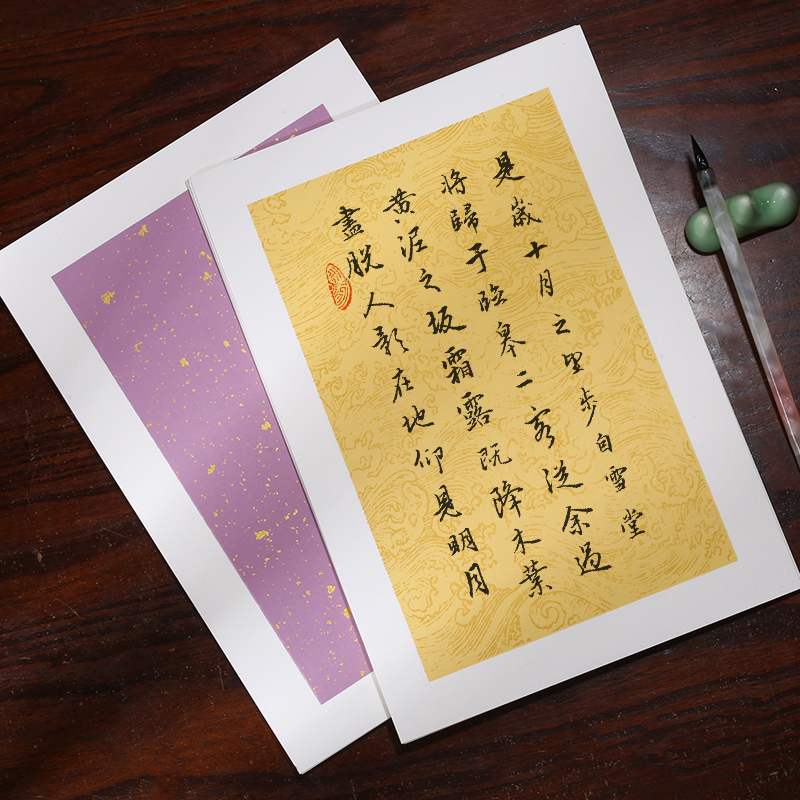 是歲十月之望步自雪堂
將歸于臨皋二客從余過
黄泥之坂霜露既降木葉
盡脱人影在地仰見明月